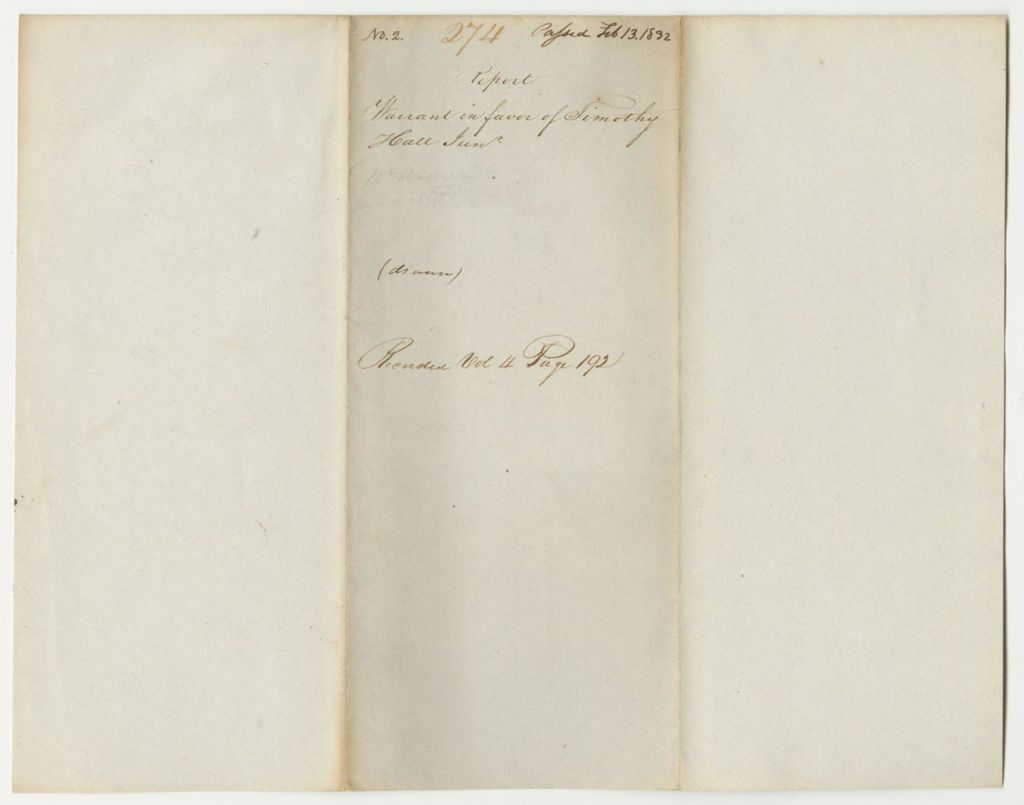 No. 2. 274 Passed Feb 13. 1832
Report
Warrant in favor of Timothy
Hall Junr.
(drawn)
Recorded Vol 4 Page 192